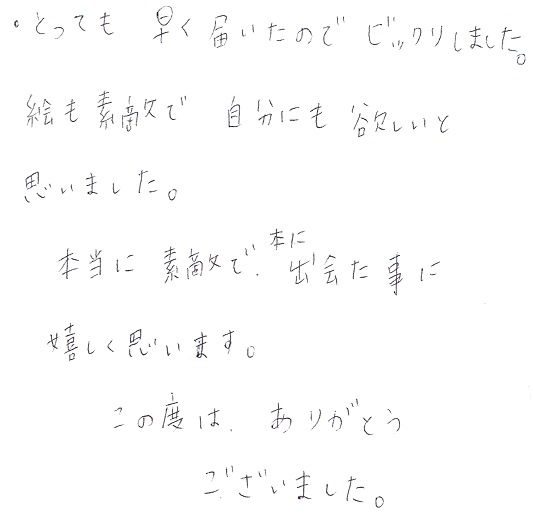 ・とっても 早く届いたので ビックリしました。
絵も素敵で 自分にも欲しいと
思いました。
本当に素敵で、本に出会た事に
嬉しく思います。
この度は、ありがとう
ございました。